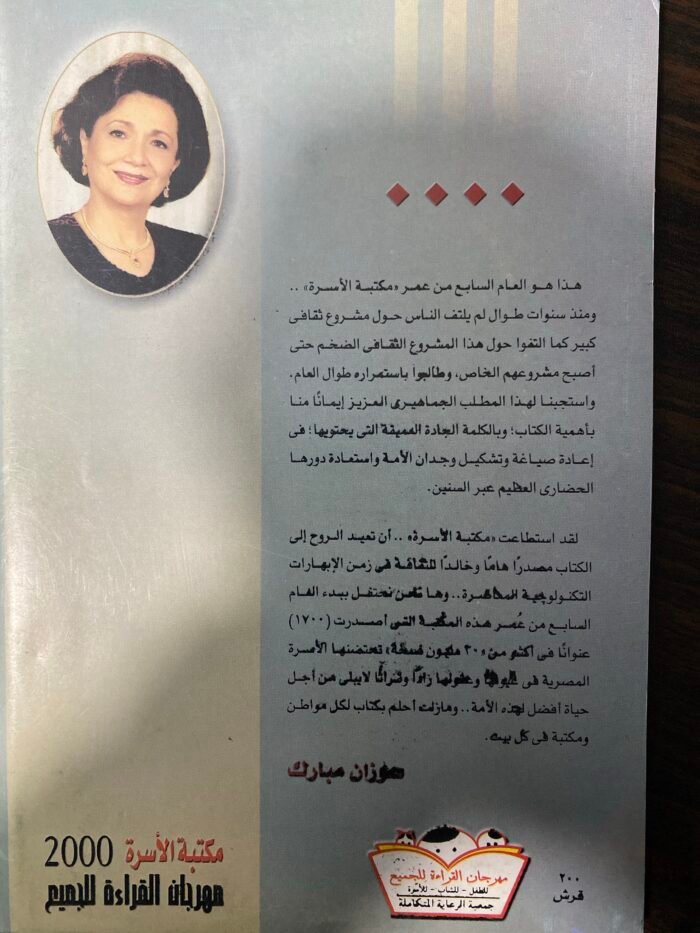 هذا هو العام السابع من عمر «مكتبة الأسرة» ..
ومنذ سنوات طوال لم يلتف الناس حول مشروع ثقافى
كبير كما التفوا حول هذا المشروع الثقافى الضخم حتى
أصبح مشروعهم الخاص، وطالبوا باستمراره طوال العام.
واستجبنا لهذا المطلب الجماهيرى العزيز إيمانًا منا
بأهمية الكتاب؛ وبالكلمة الجادة العميقة التى يحتويها؛ فى
إعادة صياغة وتشكيل وجدان الأمة واستعادة دورها
الحضارى العظيم عبر السنين.
لقد استطاعت «مكتبة الأسرة» .. أن تعيد الروح إلى
الكتاب مصدرًا هامًا وخالدًا للثقافة فى زمن الإبهارات
التكنولوجية المعاصرة .. وها نحن نحتفل ببدء العام
السابع من عُمر هذه المكتبة التى أصدرت (١٧٠٠)
عنوانًا فى أكثر من «٣٠ مليون نسخة» تحتضنها الأسرة
المصرية فى عيونها وعقولها زادًا وتراثًا لايبلى من أجل
حياة أفضل لهذه الأمة .. ومازلت أحلم بكتاب لكل مواطن
ومكتبة فى كل بيت.
سوزان مبارك
مكتبة الأسرة 2000
مهرجان القراءة للجميع
مهرجان القراءة للجميع
للطفل - للشباب - للأسرة
جمعية الرعاية المتكاملة
٢٠٠
قرش